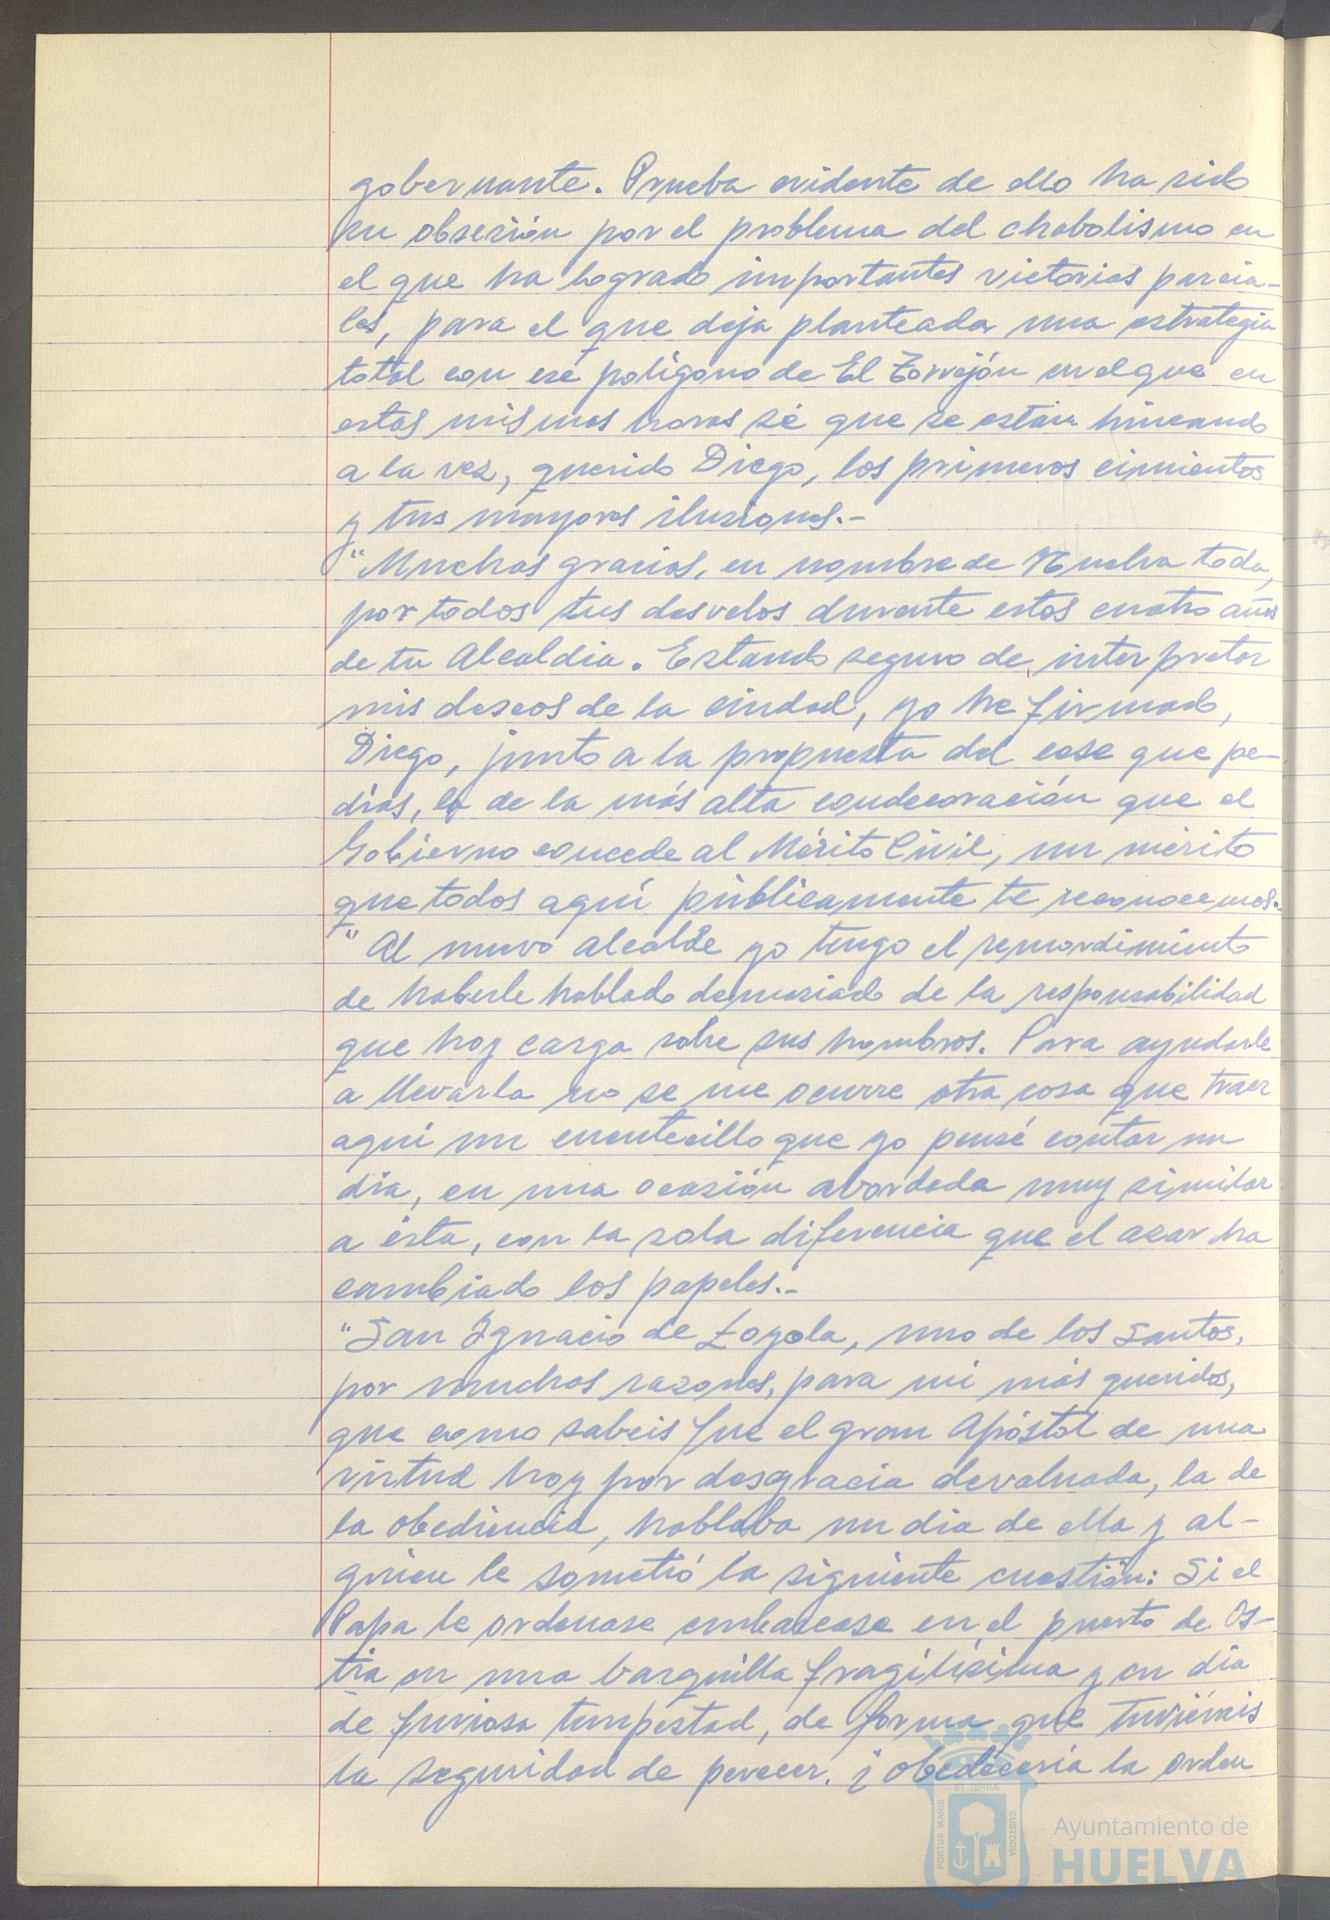 gobernante. Prueba evidente de ello ha sido
su obsesión por el problema del chabolismo en
el que ha logrado importantes victorias parcia-
les, para el que deja planteada una estrategia
total con ese polígono de El Torrejón en el que en
estas mismas horas sé que se están hincando
a la vez, querido Diego, los primeros cimientos
y tus mayores ilusiones.-
"Muchas gracias, en nombre de Huelva toda,
por todos tus desvelos durante estos cuatro años
de tu Alcaldia. Estando seguro de interpretar
mis deseos de la ciudad, yo he firmado,
Diego, junto a la propuesta del cese que pe-
dias, la de la más alta condecoración que el
Gobierno concede al Mérito Civil, un mérito
que todos aquí públicamente te reconocemos.-
"Al nuevo alcalde yo tengo el remordimiento
de haberle hablado demasiado de la responsabilidad
que hoy carga sobre sus hombros. Para ayudarle
a llevarla no se me ocurre otra cosa que traer
aquí un cuentecillo que yo pensé contar un
dia, en una ocasión abordada muy similar
a ésta, con la sola diferencia que el azar ha
cambiado los papeles.-
"San Ignacio de Loyola, uno de los Santos,
por muchas razones, para mi más queridos,
que como sabeis fue el gran Apóstol de una
virtud hoy por desgracia devaluada, la de
la obediencia, hablaba un dia de ella y al-
guien le sometió la siguiente cuestión: Si el
Papa le ordenase embarcase en el puerto de Os-
tia en una barquilla fragilísima y en dia
de furiosa tempestad, de forma que tuviérais
la seguridad de perecer. ¿obedeceria la orden
PORTUS MARIS ET TERRÆ CUSTODIA
Ayuntamiento de
HUELVA